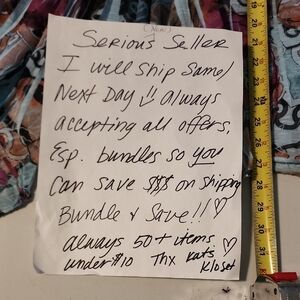 (New)
Serious Seller
I will ship same/
Next Day !! always
accepting all offers,
Esp. bundles so you
can save $$$ on shipping
Bundle & Save!! ♡
always 50+ items ♡
under $10 Thx Kat's
Kloset
20
21
22
23
24
25
26
27
28
29
30
31